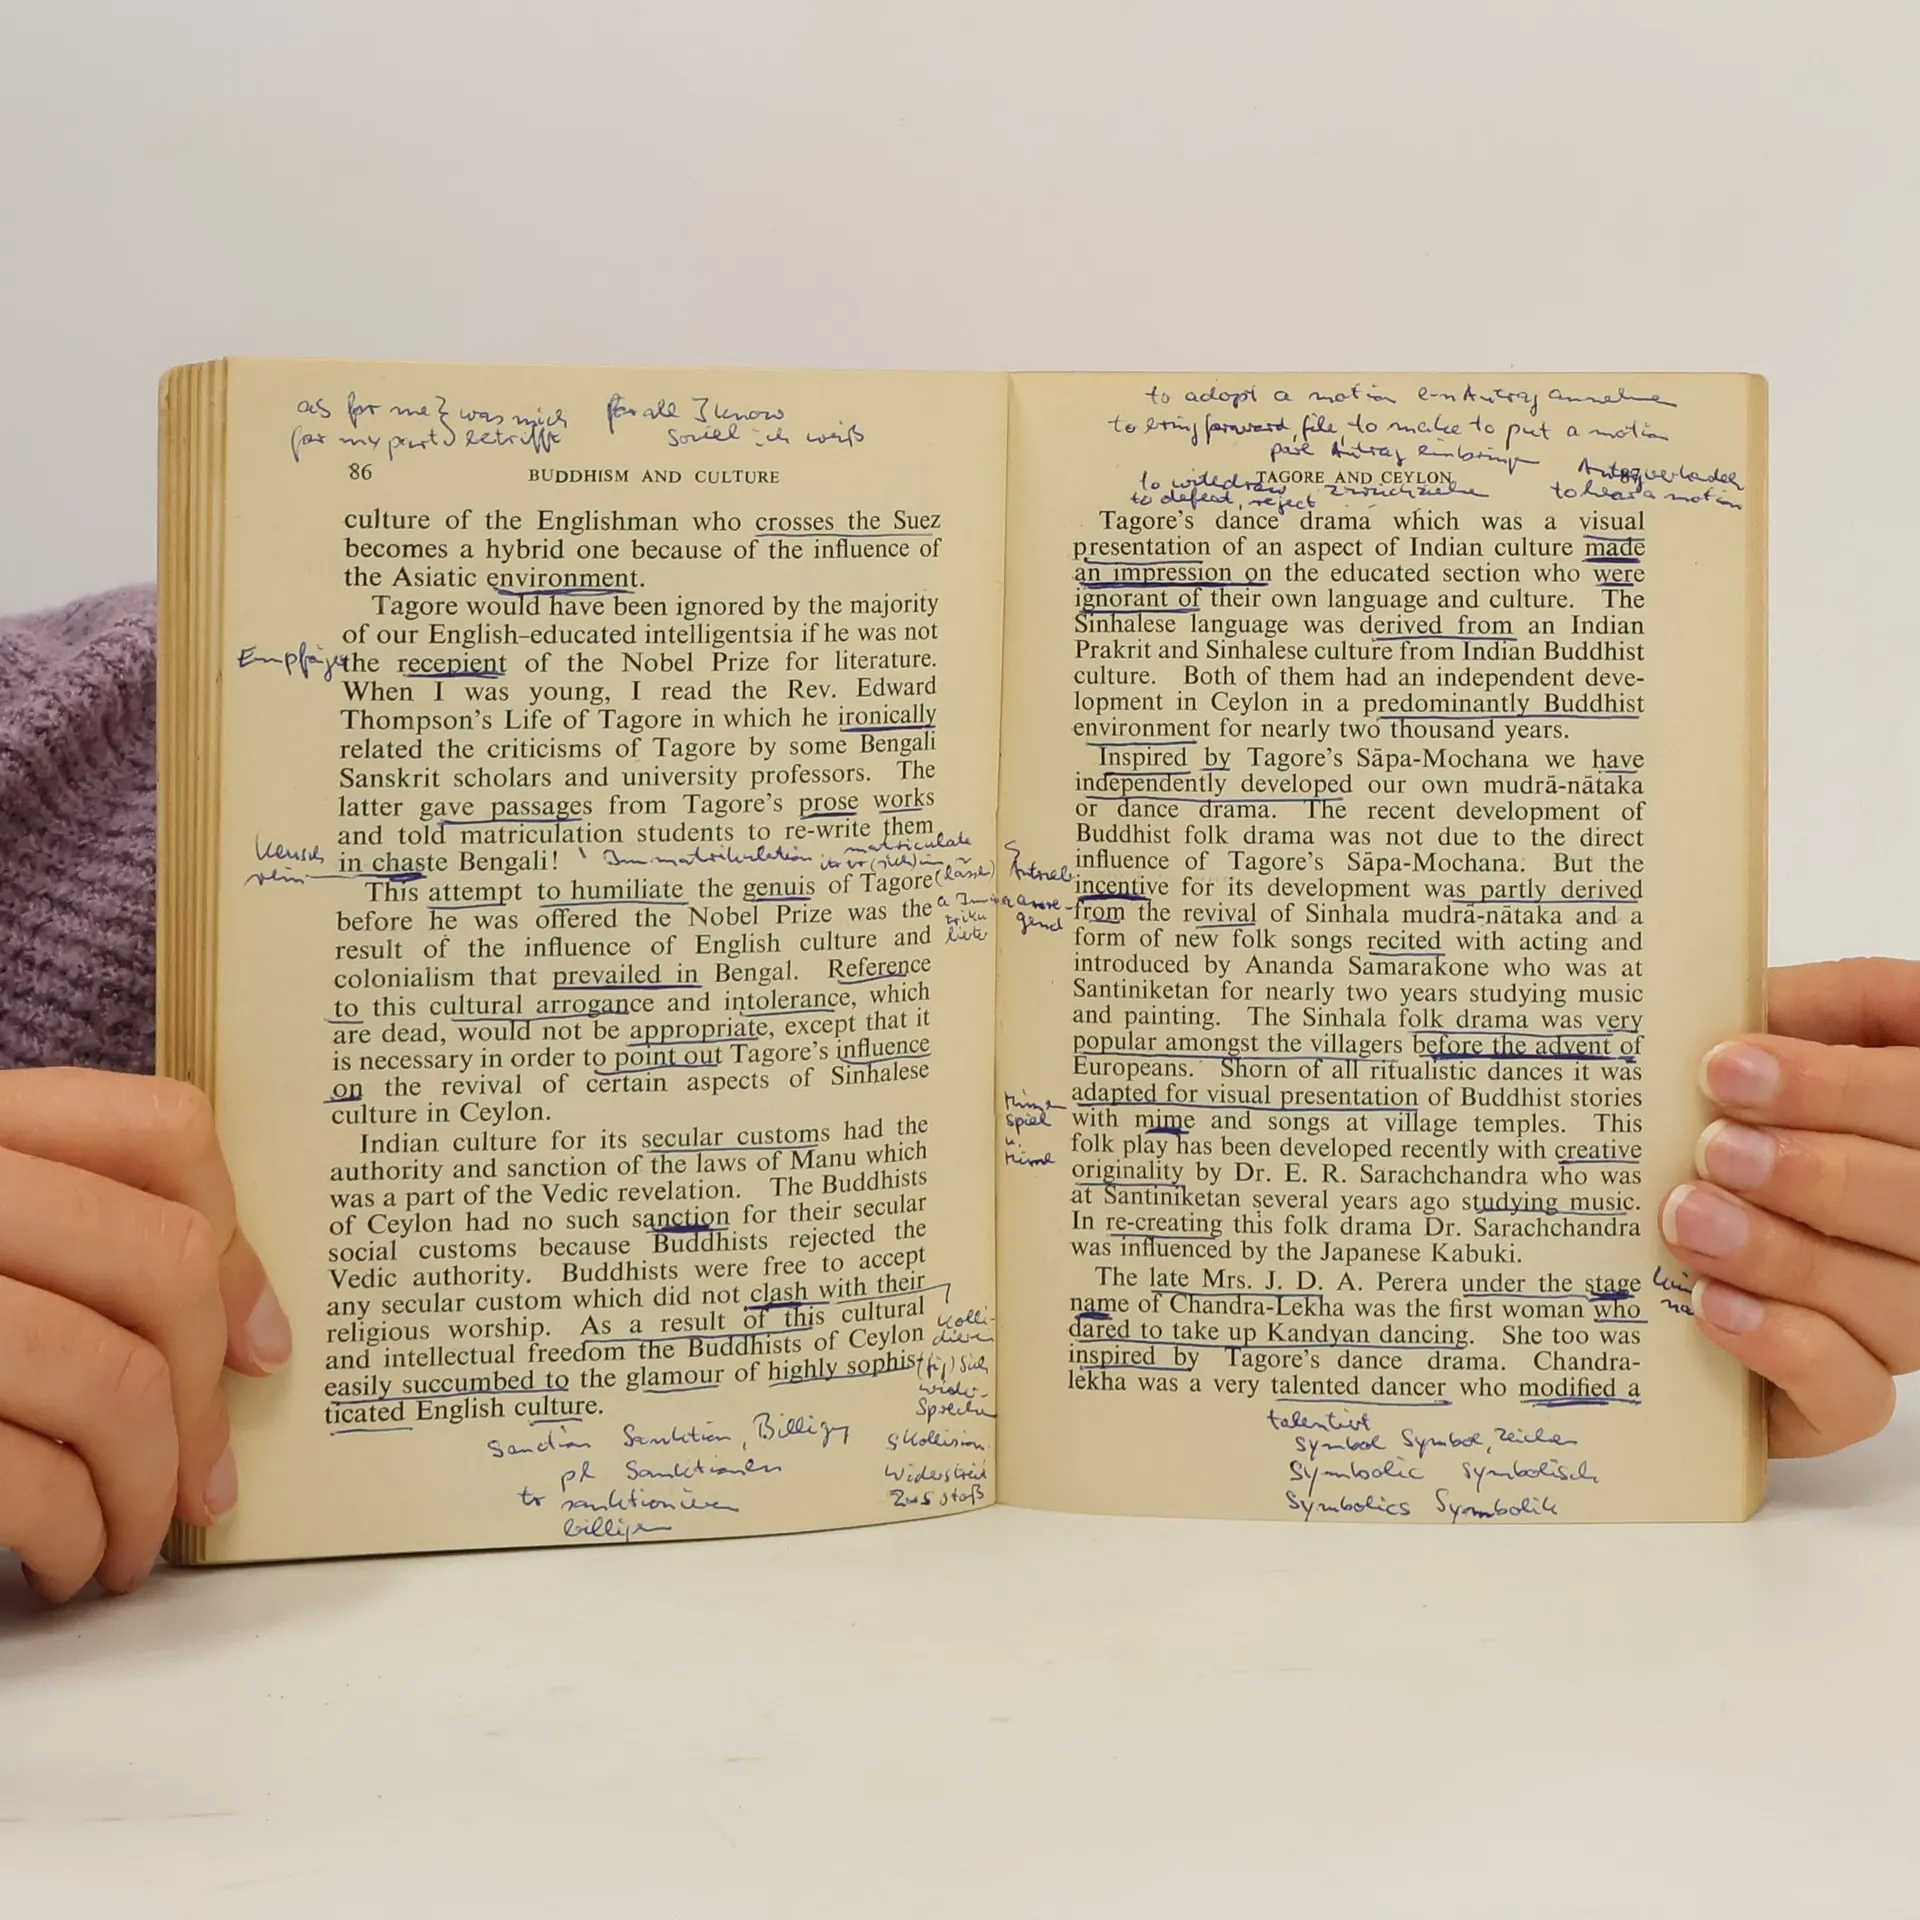 as for me } was mich for all I know
for my part } betrifft soviel ich weiß
86 BUDDHISM AND CULTURE
culture of the Englishman who crosses the Suez
becomes a hybrid one because of the influence of
the Asiatic environment.
Tagore would have been ignored by the majority
of our English-educated intelligentsia if he was not
Empfänger
the recepient of the Nobel Prize for literature.
When I was young, I read the Rev. Edward
Thompson's Life of Tagore in which he ironically
related the criticisms of Tagore by some Bengali
Sanskrit scholars and university professors. The
latter gave passages from Tagore's prose works
and told matriculation students to re-write them
keusch
rein
in chaste Bengali!
Immatrikulation matriculate
This attempt to humiliate the genuis of Tagore
before he was offered the Nobel Prize was the
result of the influence of English culture and
colonialism that prevailed in Bengal. Reference
to this cultural arrogance and intolerance, which
are dead, would not be appropriate, except that it
is necessary in order to point out Tagore's influence
on the revival of certain aspects of Sinhalese
culture in Ceylon.
Indian culture for its secular customs had the
authority and sanction of the laws of Manu which
was a part of the Vedic revelation. The Buddhists
of Ceylon had no such sanction for their secular
social customs because Buddhists rejected the
Vedic authority. Buddhists were free to accept
any secular custom which did not clash with their
religious worship. As a result of this cultural
and intellectual freedom the Buddhists of Ceylon
easily succumbed to the glamour of highly sophis-
ticated English culture.
kolli-
dieren
(fig) sich
wider-
sprechen
s Kollision
Widerstreit
Zus.stoß
sanction Sanktion, Billigung
pl Sanktionen
tr sanktionieren
billigen
to adopt a motion e-n Antrag annehmen
to bring forward, file, to make to put a motion
parl Antrag einbringen
to withdraw zurückziehen
to defeat, reject
to hear a motion
TAGORE AND CEYLON 87
Tagore's dance drama which was a visual
presentation of an aspect of Indian culture made
an impression on the educated section who were
ignorant of their own language and culture. The
Sinhalese language was derived from an Indian
Prakrit and Sinhalese culture from Indian Buddhist
culture. Both of them had an independent deve-
lopment in Ceylon in a predominantly Buddhist
environment for nearly two thousand years.
Inspired by Tagore's Sāpa-Mochana we have
independently developed our own mudrā-nātaka
or dance drama. The recent development of
Buddhist folk drama was not due to the direct
influence of Tagore's Sāpa-Mochana. But the
s Antrieb
a anre-
gend
incentive for its development was partly derived
from the revival of Sinhala mudrā-nātaka and a
form of new folk songs recited with acting and
introduced by Ananda Samarakone who was at
Santiniketan for nearly two years studying music
and painting. The Sinhala folk drama was very
popular amongst the villagers before the advent of
Europeans. Shorn of all ritualistic dances it was
adapted for visual presentation of Buddhist stories
Mimen
spiel
u.
Mime
with mime and songs at village temples. This
folk play has been developed recently with creative
originality by Dr. E. R. Sarachchandra who was
at Santiniketan several years ago studying music.
In re-creating this folk drama Dr. Sarachchandra
was influenced by the Japanese Kabuki.
The late Mrs. J. D. A. Perera under the stage
name of Chandra-Lekha was the first woman who
dared to take up Kandyan dancing. She too was
inspired by Tagore's dance drama. Chandra-
lekha was a very talented dancer who modified a
talentiert
symbol Symbol, Zeichen
symbolic symbolisch
symbolics Symbolik